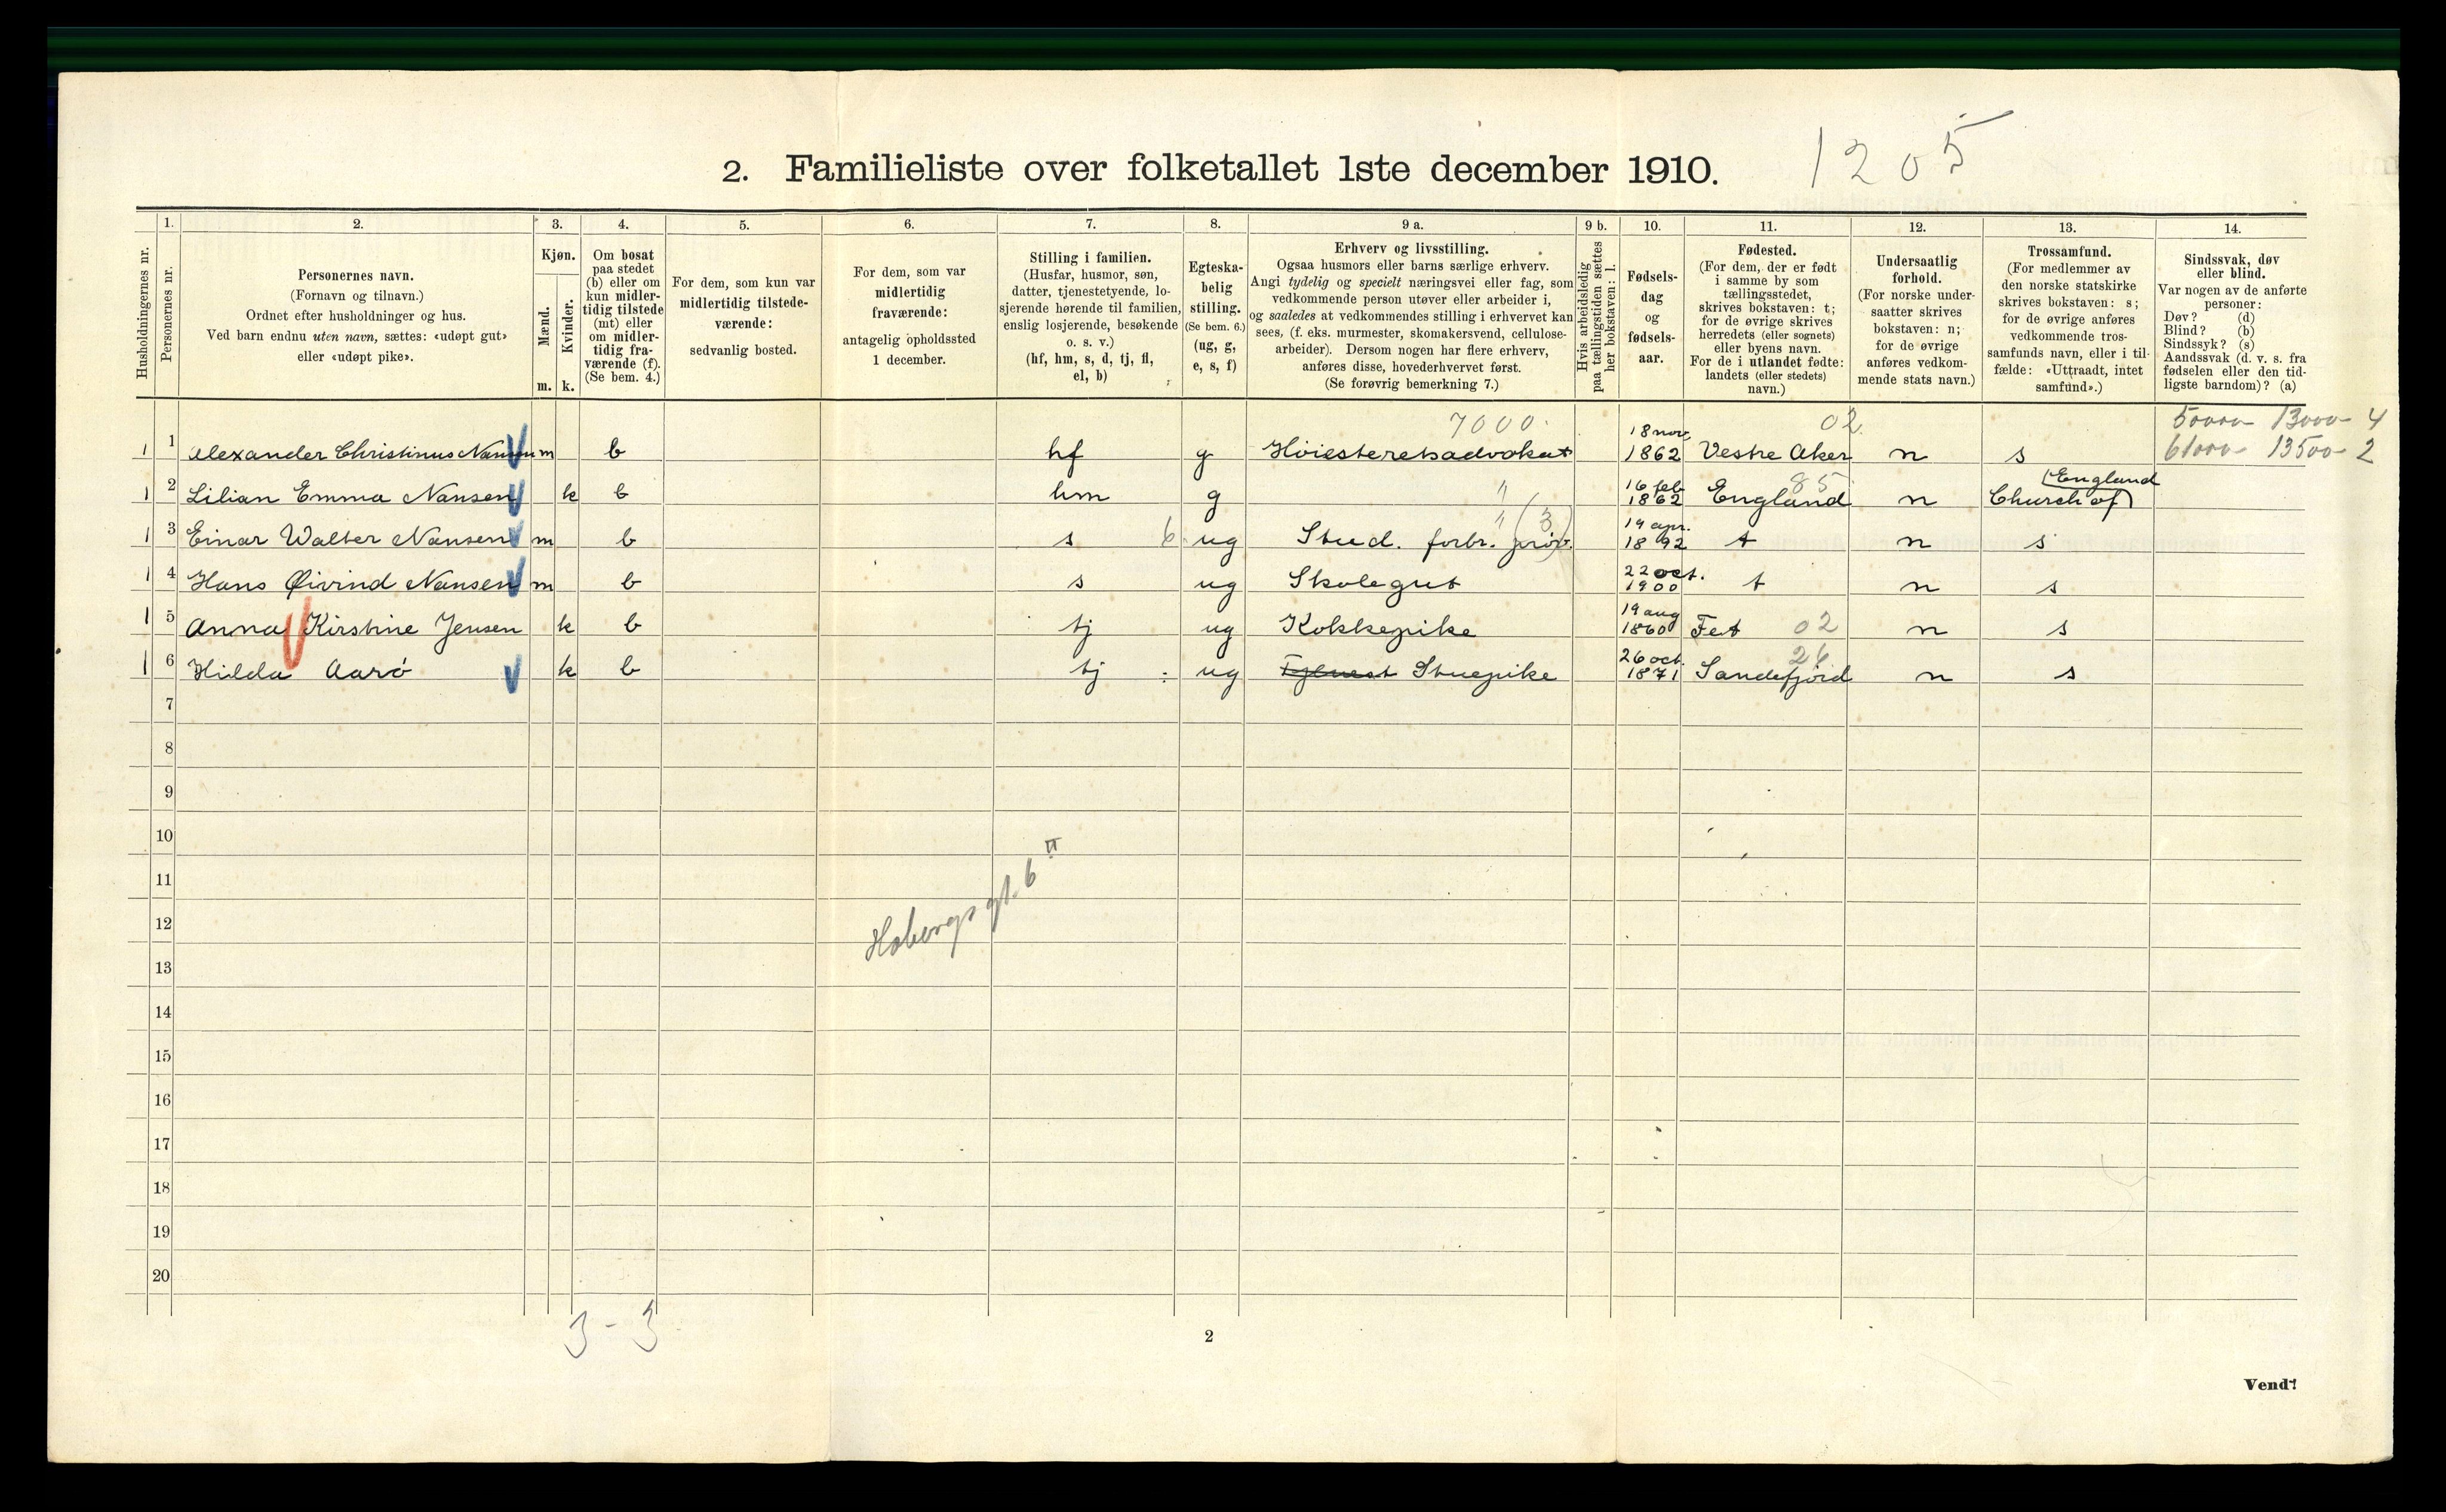 2. Familieliste over folketallet 1ste december 1910. 1205
Husholdningernes nr.
1. Personernes nr.
2. Personernes navn.
(Fornavn og tilnavn.)
Ordnet efter husholdninger og hus.
Ved barn endnu uten navn, sættes: «udøpt gut»
eller «udøpt pike».
3. Kjøn.
Mænd. m.
Kvinder. k.
4. Om bosat
paa stedet
(b) eller om
kun midler-
tidig tilstede
(mt) eller
om midler-
tidig fra-
værende (f).
(Se bem. 4.)
5. For dem, som kun var
midlertidig tilstede-
værende:
sedvanlig bosted.
6. For dem, som var
midlertidig
fraværende:
antagelig opholdssted
1 december.
7. Stilling i familien.
(Husfar, husmor, søn,
datter, tjenestetyende, lo-
sjerende hørende til familien,
enslig losjerende, besøkende
o. s. v.)
(hf, hm, s, d, tj, fl,
el, b)
8. Egteska-
belig
stilling.
(Se bem. 6.)
(ug, g,
e, s, f)
9 a. Erhverv og livsstilling.
Ogsaa husmors eller barns særlige erhverv.
Angi tydelig og specielt næringsvei eller fag, som
vedkommende person utøver eller arbeider i,
og saaledes at vedkommendes stilling i erhvervet kan
sees, (f. eks. murmester, skomakersvend, cellulose-
arbeider). Dersom nogen har flere erhverv,
anføres disse, hovederhvervet først.
(Se forøvrig bemerkning 7.)
9 b. Hvis arbeidsledig
paa tællingstiden sættes
her bokstaven: l.
10. Fødsels-
dag
og
fødsels-
aar.
11. Fødested.
(For dem, der er født
i samme by som
tællingsstedet,
skrives bokstaven: t;
for de øvrige skrives
herredets (eller sognets)
eller byens navn.
For de i utlandet fødte:
landets (eller stedets)
navn.)
12. Undersaatlig
forhold.
(For norske under-
saatter skrives
bokstaven: n;
for de øvrige
anføres vedkom-
mende stats navn.)
13. Trossamfund.
(For medlemmer av
den norske statskirke
skrives bokstaven: s;
for de øvrige anføres
vedkommende tros-
samfunds navn, eller i til-
fælde: «Uttraadt, intet
samfund».)
14. Sindssvak, døv
eller blind.
Var nogen av de anførte
personer:
Døv? (d)
Blind? (b)
Sindssyk? (s)
Aandssvak (d. v. s. fra
fødselen eller den tid-
ligste barndom)? (a)
7000. 02. 50000- 13000- 4
1 1 Alexander Christinus Nansen m b hf g Høiesteretsadvokat 18 nov. 1862 Vestre Aker n s 61000- 13500- 2
1 2 Lilian Emma Nansen k b hm g " 16 feb 1862 England 85 n Church of England
1 3 Einar Walter Nansen m b s 6 ug Stud. forbr. prøv. " (3) 19 apr. 1892 t n s
1 4 Hans Øivind Nansen m b s ug Skolegut 22 oct. 1900 t n s
1 5 Anna Kirstine Jensen k b tj ug Kokkepike 19 aug 1860 Fet 02 n s
1 6 Hilda Aarö k b tj ug Tjenest Stuepike 26 oct. 1871 Sandefjord 26 n s
7
8
9
10
11
Hobergs gt. 6 II
12
13
14
15
16
17
18
19
20
3 - 3
2
Vend!